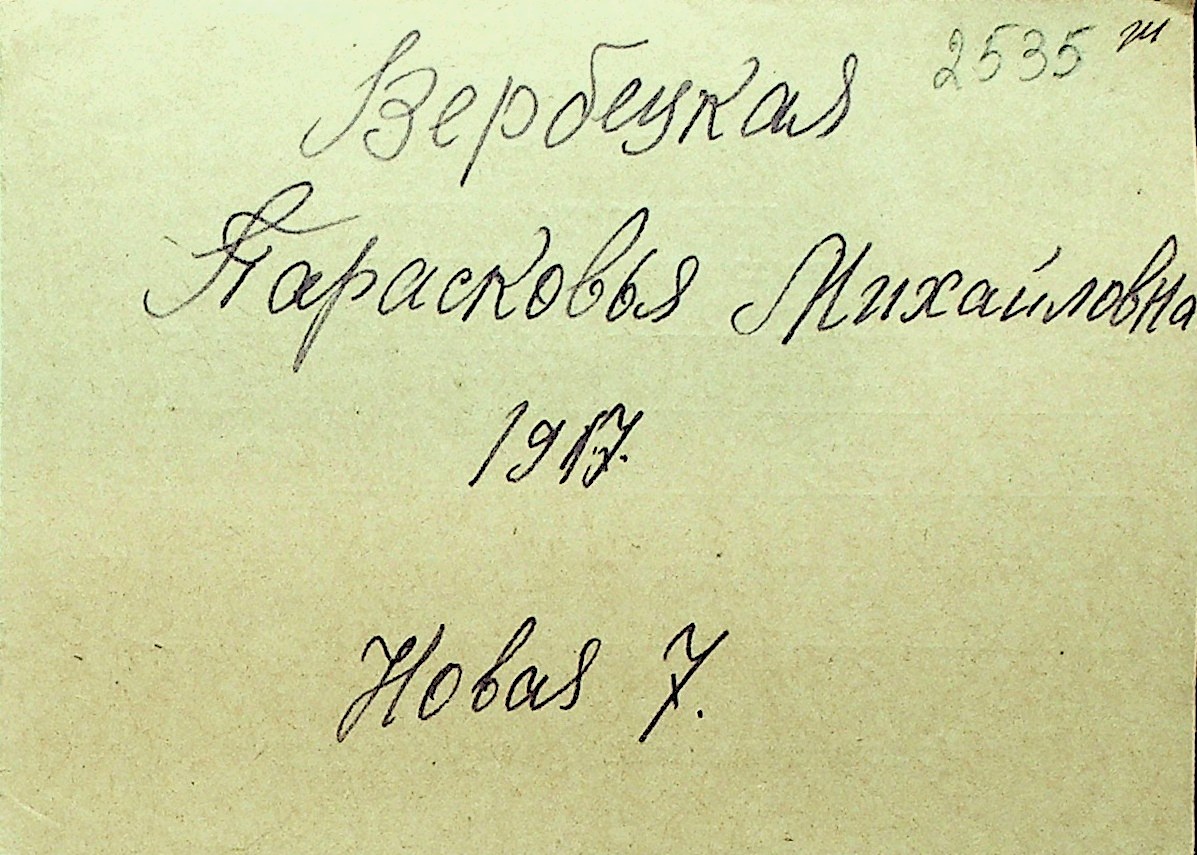 2535 ж
Вербецкая
Парасковья Михайловна
1917.
Новая 7.